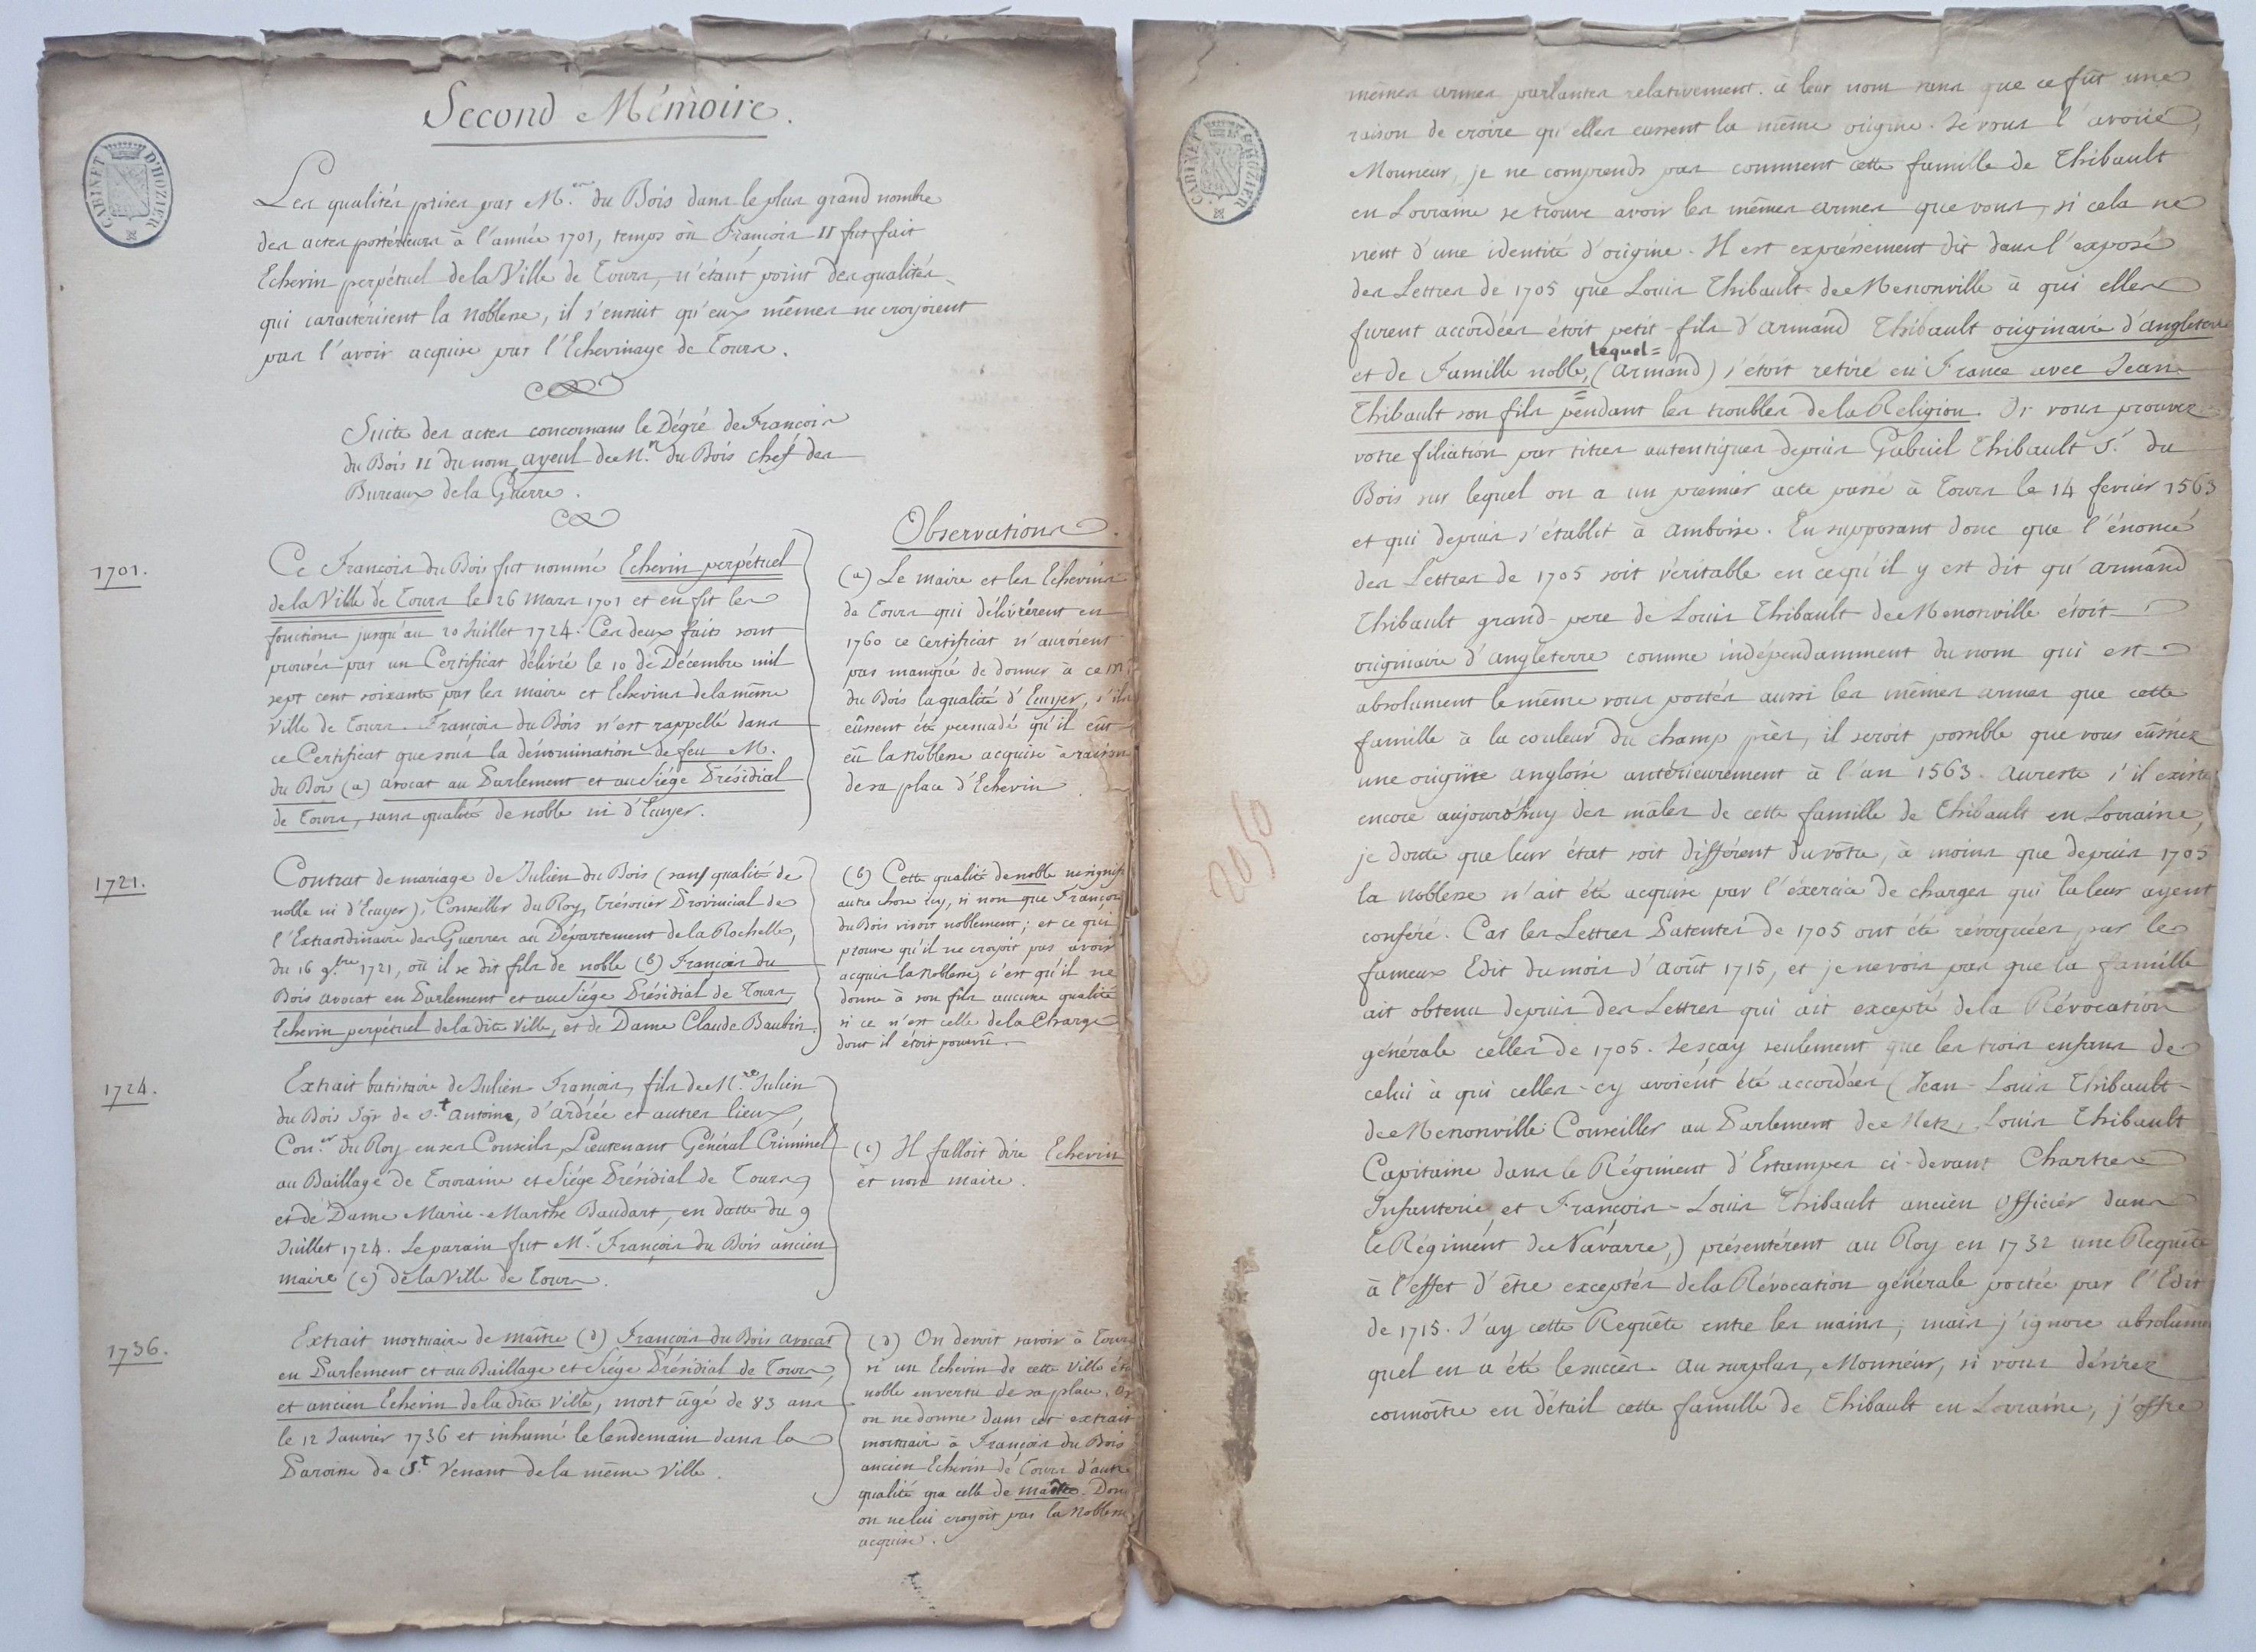 Second Mémoire.
CABINET D'HOZIER
Les qualités prises par M.rs du Bois dans le plus grand nombre
des actes postérieurs à l'année 1701, temps où François II fut fait
Echevin perpétuel de la Ville de Tours, n'étant point des qualités
qui caractérisent la noblesse, il s'ensuit qu'eux mêmes ne croyoient
pas l'avoir acquise par l'Echevinage de Tours.
Suite des actes concernans le Dégré de François
du Bois II du nom, ayeul de M.r du Bois chef des
Bureaux de la Guerre.
1701.
Ce François du Bois fut nommé Echevin perpétuel
de la Ville de Tours le 26 Mars 1701 et en fit les
fonctions jusqu'au 20 Juillet 1724. Ces deux faits sont
prouvés par un Certificat délivré le 10 de Décembre mil
sept cent soixante par les maire et Echevins de la même
Ville de Tours. François du Bois n'est rappellé dans
ce Certificat que sous la dénomination de feu M.
du Bois (a) avocat au Parlement et au Siége Présidial
de Tours, sans qualité de noble ni d'Ecuyer.
1721.
Contrat de mariage de Julien du Bois (sans qualité de
noble ni d'Ecuyer), Conseiller du Roy, Trésorier Provincial de
l'Extraordinaire des Guerres au Département de la Rochelle,
du 16 9.bre 1721, où il se dit fils de noble (b) François du
Bois avocat en Parlement et au Siége Présidial de Tours,
Echevin perpétuel de la dite Ville, et de Dame Claude Baubin.
1724.
Extrait batistaire de Julien-François, fils de M.re Julien
du Bois Sgr de S.t Antoine, d'Ardrée et autres lieux,
Con.er du Roy en ses Conseils, Lieutenant Général Criminel
au Baillage de Touraine et Siége Présidial de Tours,
et de Dame Marie-Marthe Baudart, en datte du 9
Juillet 1724. Le parain fut M.r François du Bois ancien
maire (c) de la Ville de Tours.
1736.
Extrait mortuaire de maître (d) François du Bois avocat
en Parlement et au Baillage et Siége Présidial de Tours,
et ancien Echevin de la dite Ville, mort âgé de 83 ans
le 12 Janvier 1736 et inhumé le lendemain dans la
Paroisse de S.t Venant de la même Ville.
Observations.
(a) Le maire et les Echevins
de Tours qui délivrérent en
1760 ce certificat n'auroient
pas manqué de donner à ce M.
du Bois la qualité d'Ecuyer, s'ils
eûssent été persuadé qu'il eût
eû la Noblesse acquise à raison
de sa place d'Echevin.
(b) Cette qualité de noble ne signifi
autre chose icy, si non que François
du Bois vivoit noblement; et ce qui
prouve qu'il ne croyoit pas avoir
acquis la noblesse, c'est qu'il ne
donne à son fils aucune qualité
si ce n'est celle de la Charge
dont il étoit pourvû.
(c) Il falloit dire Echevin
et non maire.
(d) On devoit savoir à Tours
si un Echevin de cette Ville étoit
noble en vertu de sa place. Or
on ne donne dans cet extrait
mortuaire à François du Bois
ancien Echevin de Tours d'autre
qualité que celle de maître. Donc
on ne lui croyoit pas la Noblesse
acquise.
CABINET D'HOZIER
mêmes armes parlantes relativement à leur nom sans que ce fût une
raison de croire qu'elles eussent la même origine. Je vous l'avoüe,
Monsieur, je ne comprends pas comment cette famille de Thibault
en Lorraine se trouve avoir les mêmes armes que vous, si cela ne
vient d'une identité d'origine. Il est expressement dit dans l'exposé
des Lettres de 1705 que Louis Thibault de Menonville à qui elles
furent accordées étoit petit-fils d'Armand Thibault originaire d'angleterre
lequel =
et de Famille noble, (Armand) s'étoit retiré en France avec Jean
Thibault son fils pendant les troubles de la Religion. Or vous prouvez
votre filiation par titres autentiques depuis Gabriel Thibault S.r du
Bois sur lequel on a un premier acte passé à Tours le 14 fevrier 1563
et qui depuis s'établit à Amboise. En supposant donc que l'énoncé
des Lettres de 1705 soit véritable en ce qu'il y est dit qu'Armand
Thibault grand-pere de Louis Thibault de Menonville étoit
originaire d'angleterre comme indépendamment du nom qui est
absolument le même vous portés aussi les mêmes armes que cette
famille à la couleur du champ près, il seroit possible que vous eûssiez
une origine angloise antérieurement à l'an 1563. Au reste s'il existe
encore aujourd'huy des mâles de cette famille de Thibault en Lorraine,
je doute que leur état soit différent du vôtre, à moins que depuis 1705
la noblesse n'ait été acquise par l'éxercice de charges qui la leur ayent
conféré. Car les Lettres Patentes de 1705 ont été révoquées par le
fameux Edit du mois d'Août 1715, et je ne vois pas que la famille
ait obtenu depuis des Lettres qui ait excepté de la Révocation
générale celles de 1705. Je sçay seulement que les trois enfans de
celui à qui celles-cy avoient été accordées (Jean-Louis Thibault
de Menonville Conseiller au Parlement de Metz, Louis Thibault
Capitaine dans le Régiment d'Estampes ci-devant Chartres
Infanterie et François-Louis Thibault ancien Officier dans
le Régiment de Navarre,) présentérent au Roy en 1732 une Requête
à l'effet d'être exceptés de la Révocation générale portée par l'Edit
de 1715. J'ay cette Requête entre les mains; mais j'ignore absolûment
quel en a été le succès. Au surplus, Monsieur, si vous désirez
connoître en détail cette famille de Thibault en Lorraine, j'offre